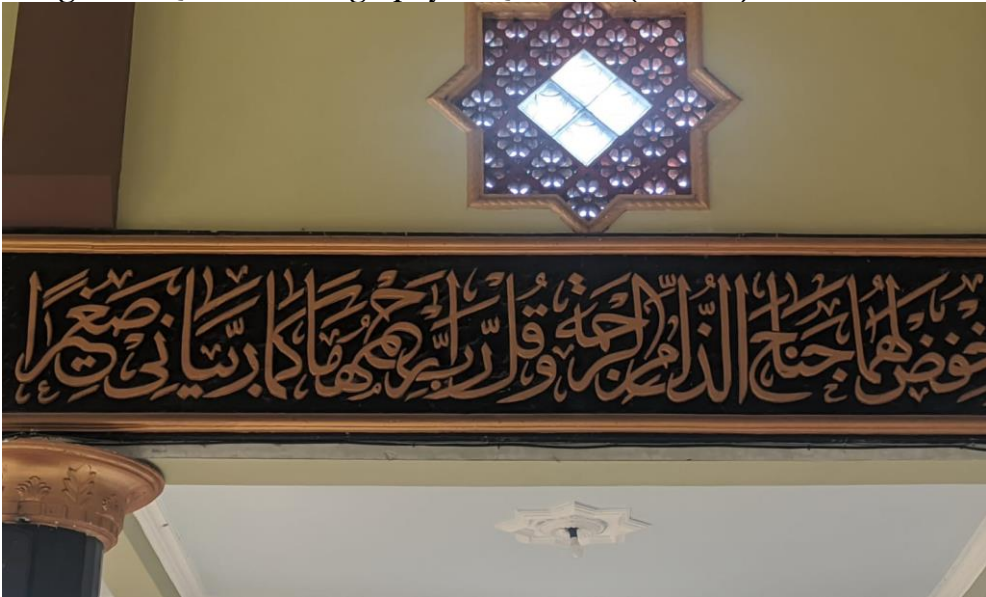 خفض لهما جناح الذل من الرحمة وقل رب ارحمهما كما ربياني صغيرا